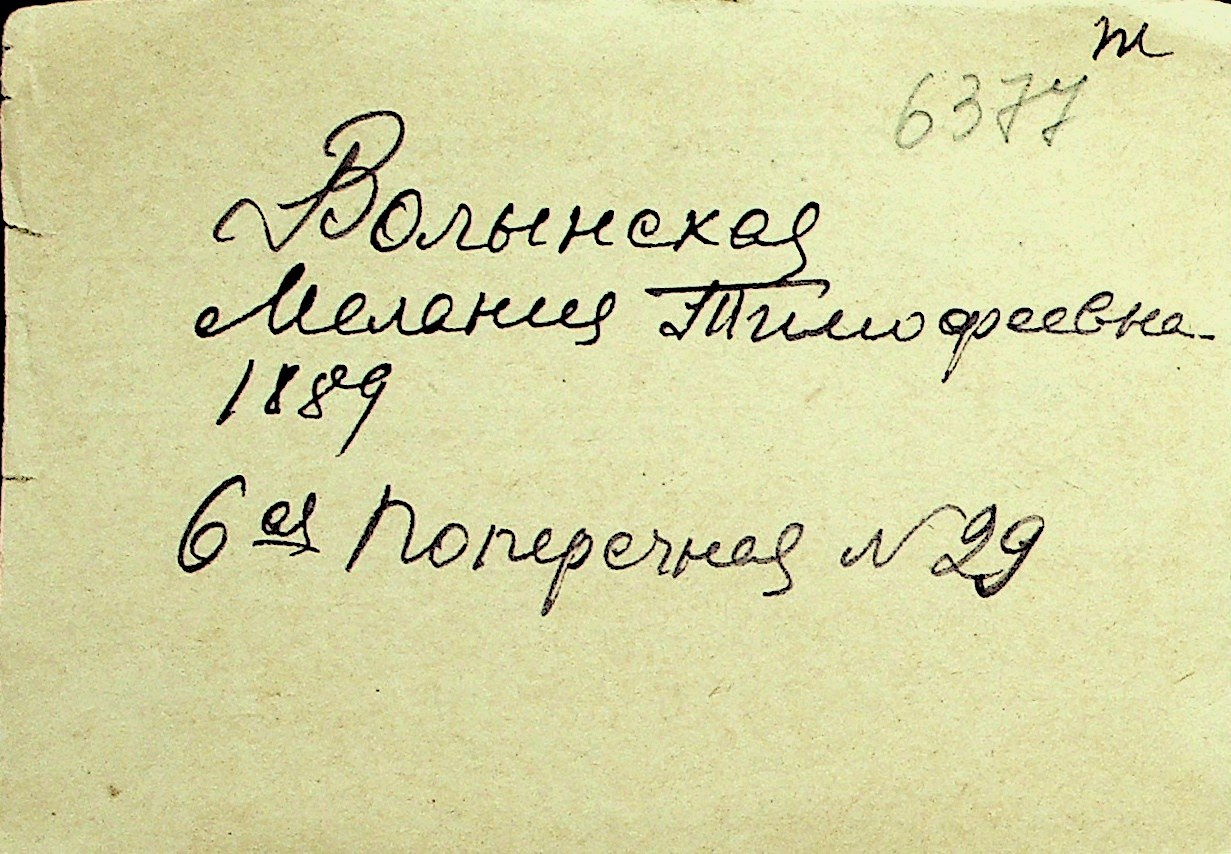 т
6377
Волынская
Мелания Тимофеевна
1889
6ая Поперечная № 29